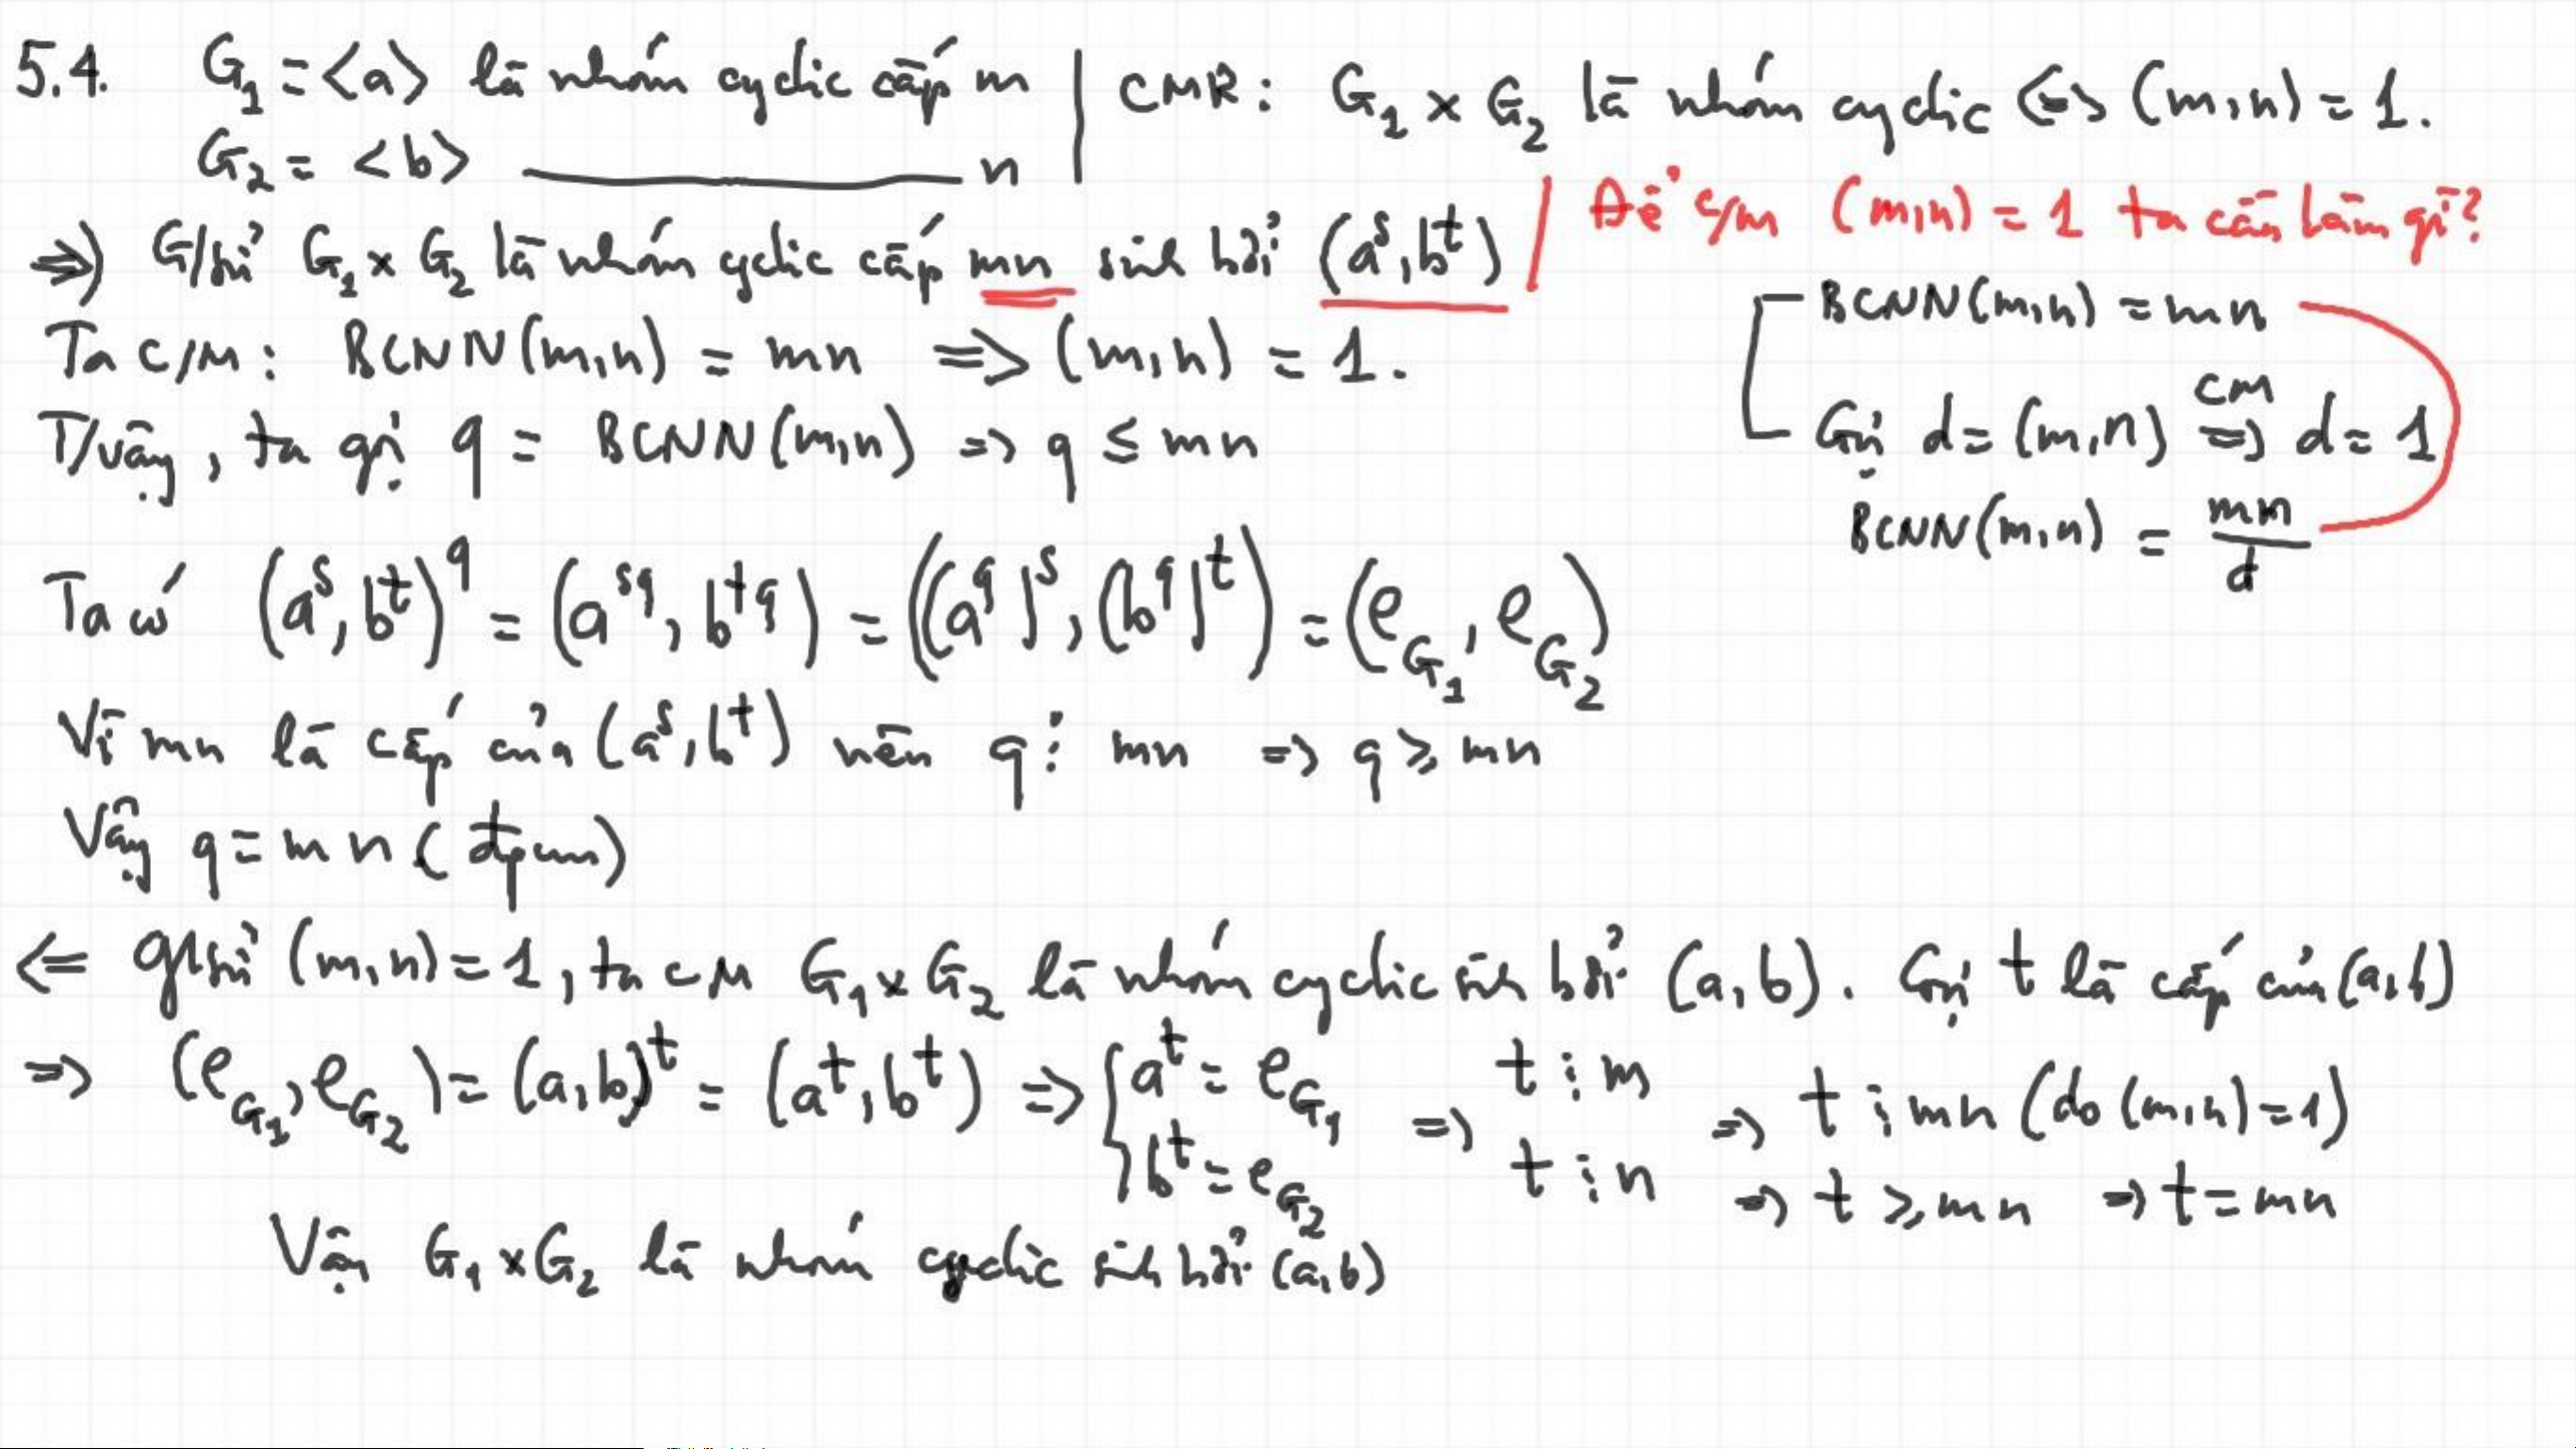 5.4. G₁ = <a> là nhóm cyclic cấp m | CMR: G₁ × G₂ là nhóm cyclic <=> (m,n) = 1.
G₂ = <b> ———— n
=>) G/sử G₁ × G₂ là nhóm cyclic cấp mn sinh bởi (aˢ, bᵗ) | Để c/m (m,n) = 1 ta cần làm gì?
Ta C/M: BCNN(m,n) = mn => (m,n) = 1.
BCNN(m,n) = mn
T/vậy, ta gọi q = BCNN(m,n) => q ≤ mn
Gọi d = (m,n) =>
CM
d = 1
BCNN(m,n) = mn/d
Ta có (aˢ, bᵗ)^q = (a^sq, b^tq) = ((a^q)ˢ, (b^q)ᵗ) = (e_G₁, e_G₂)
Vì mn là cấp của (aˢ, bᵗ) nên q ⋮ mn => q ≥ mn
Vậy q = mn (đpcm)
<= g/sử (m,n) = 1, ta CM G₁ × G₂ là nhóm cyclic sinh bởi (a,b). Gọi t là cấp của (a,b)
=> (e_G₁, e_G₂) = (a,b)ᵗ = (aᵗ, bᵗ) => { aᵗ = e_G₁ => t ⋮ m => t ⋮ mn (do (m,n) = 1)
bᵗ = e_G₂ t ⋮ n => t ≥ mn => t = mn
Vậy G₁ × G₂ là nhóm cyclic sinh bởi (a,b)